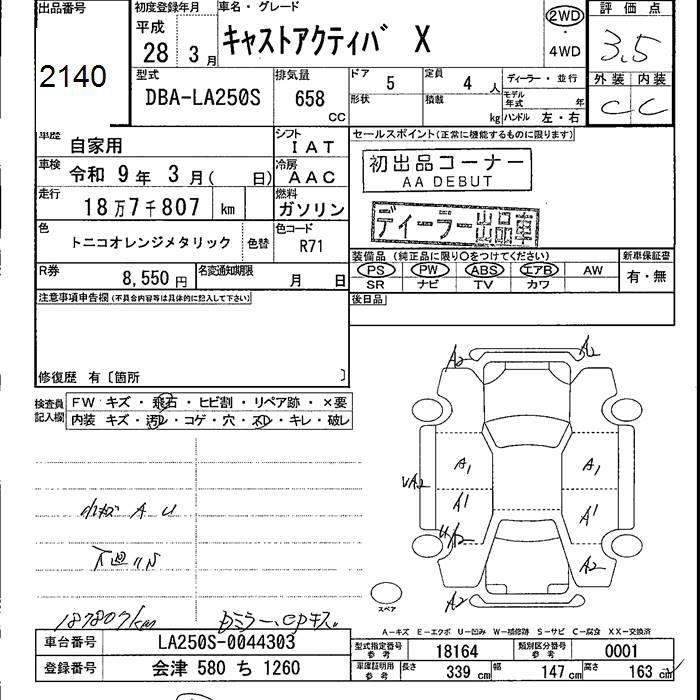 出品番号
2140
初度登録年月
平成
28 年 3 月
車名・グレード
キャストアクティバ X
2WD
・
4WD
評価点
3.5
外装 内装
C C
型式
DBA-LA250S
排気量
658 CC
ドア 5
定員 4 人
形状
積載 kg
ディーラー・並行
モデル年式 年
ハンドル 左・右
車歴 自家用
シフト IAT
車検 令和 9 年 3 月( 日)
冷房 AAC
走行 18万7千807 km
燃料 ガソリン
色 トニコオレンジメタリック 色替
色コード R71
R券 8,550円
名変通知期限 月 日
セールスポイント(正常に機能するものに限ります)
初出品コーナー
AA DEBUT
ディーラー出品車
装備品(純正品に限り○をつけてください)
新車保証書
PS PW ABS エアB AW
有・無
SR ナビ TV カワ
後日品
注意事項申告欄(不具合内容等は具体的に記入して下さい)
修復歴 有〔箇所 〕
検査員記入欄
FW キズ・飛石・ヒビ割・リペア跡・×要
内装 キズ・汚レ・コゲ・穴・スレ・キレ・破レ
A2 A2
A1 A1
VA2
A1 A1
U/A2
A2
A2
小キズ A U
下廻りS
187807km
Dミラー、CPキズ。
スペア
A-キズ E-エクボ U-凹み W-補修跡 S-サビ C-腐食 XX-交換済
車台番号 LA250S-0044303
登録番号 会津 580 ち 1260
型式指定番号 参考 18164
類別区分番号 参考 0001
車庫証明用 参考 長さ 339 cm 幅 147 cm 高さ 163 cm